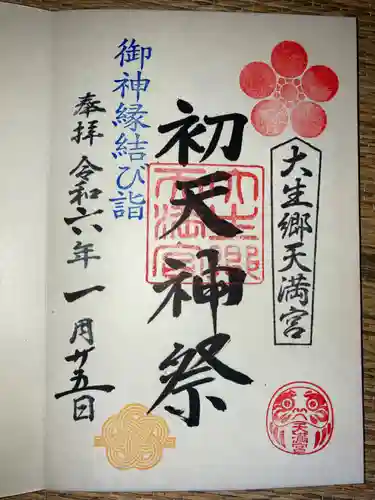 大生郷天満宮
初天神祭
大生郷天満宮
御神縁結び詣
奉拝 令和六年一月廿五日
天満宮